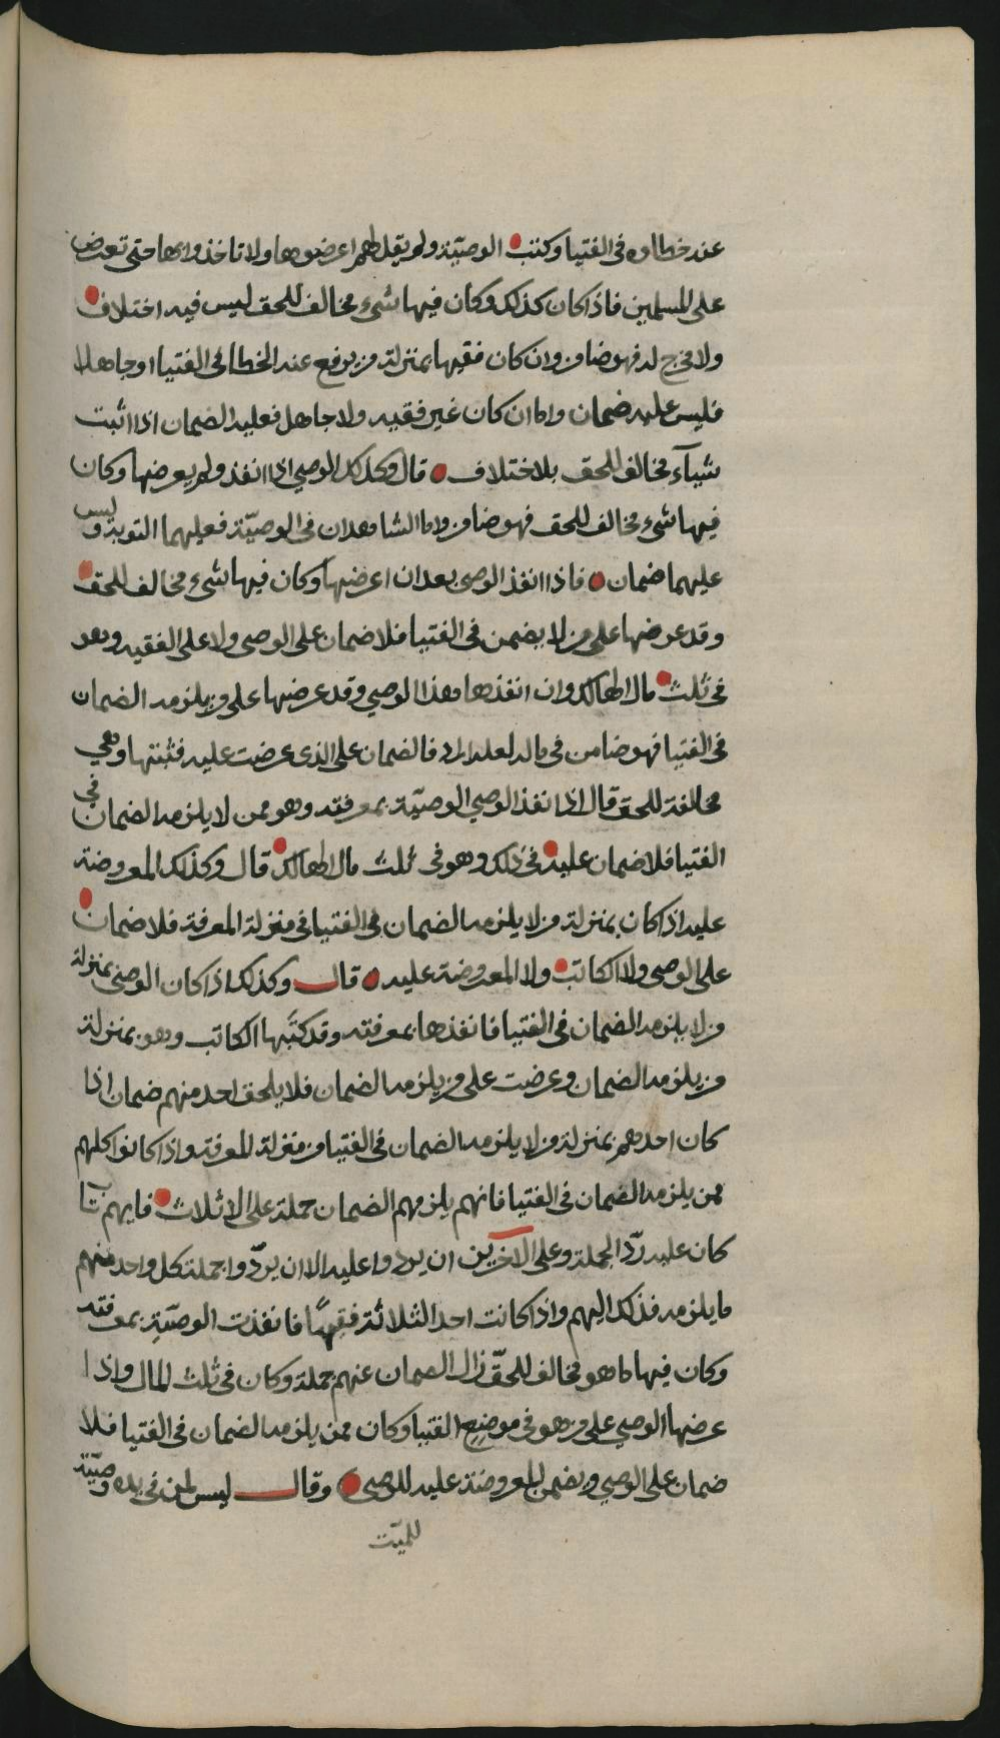 عند خطاوه في الفتيا وكتب الوصيّة ولم يقل لهم اعرضوها ولا تاخذوا بها حتى تعرض
على المسلمين فاذا كان كذلك وكان فيها شيء مخالف للحق ليس فيه اختلاف
ولا مخرج له فهو ضامن وان كان فقيها بمنزلة من يرفع عند الخطا في الفتيا او جاهلا
فليس عليه ضمان واما ان كان غير فقيه ولا جاهل فعليه الضمان اذا اثبت
شيآء مخالف للحق بلا اختلاف قال وكذلك الوصي اذا انفذ ولم يعرضها وكان
فيها شيء مخالف للحق فهو ضامن واما الشاهدان في الوصيّة فعليهما التوبة وليس
عليهما ضمان فاذا انفذ الوصي بعد ان اعرضها وكان فيها شيء مخالف للحق
وقد عرضها على من لا يضمن في الفتيا فلا ضمان على الوصي ولا على الفقيه وهو
في ثلث مال الهالك وان انفذها هذا الوصي وقد عرضها على من يلزمه الضمان
في الفتيا فهو ضامن في ماله لعله اراد فالضمان على الذي عرضت عليه فثبتها وهي
مخالفة للحق قال اذا نفذ الوصي الوصيّة بمعرفته وهو ممن لا يلزمه الضمان في
الفتيا فلا ضمان عليه في ذلك وهو في ثلث مال الهالك قال وكذلك المعروضة
عليه اذا كان بمنزلة من لا يلزمه الضمان في الفتيا في منزلة المعرفة فلا ضمان
على الوصي ولا الكاتب ولا المعروضة عليه قال وكذلك اذا كان الوصي بمنزلة
من لا يلزمه الضمان في الفتيا فانفذها بمعرفته وقد كتبها الكاتب وهو بمنزلة
من يلزمه الضمان وعرضت على من يلزمه الضمان فلا يلحق احد منهم ضمان اذا
كان احدهم بمنزلة من لا يلزمه الضمان في الفتيا من منزلة المعرفة واذا كانوا كلهم
ممن يلزمه الضمان في الفتيا فانهم يلزمهم الضمان جملة على الاثلاث فايهم تاب
كان عليه ردّ الجملة وعلى الاخرين ان يردوا عليه الا ان يردّوا جملة كل واحد منهم
ما يلزمه فذلك اليهم واذا كانت احد الثلاثة فقيهًا فانفذت الوصيّة بمعرفته
وكان فيها ما هو مخالف للحقّ زال الضمان عنهم جملة وكان في ثلث المال واذا
عرضها الوصي على من هو في موضع الفتيا وكان ممن يلزمه الضمان في الفتيا فلا
ضمان على الوصي ويضمن المعروضة عليه للوصي وقال ليس لمن في يده وصيّة
للميّت